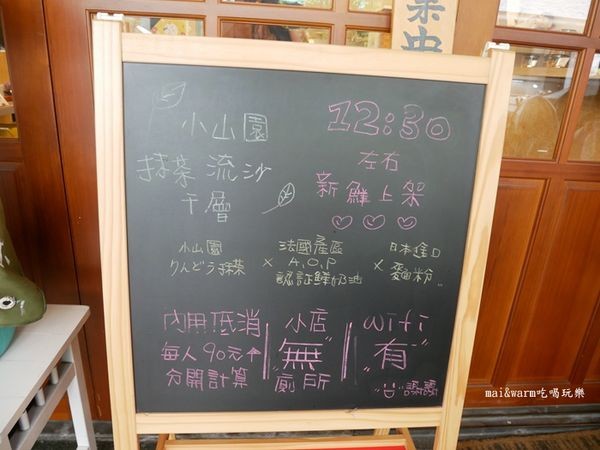 小山園
抹茶流沙
千層
12:30
左右
新鮮上架
小山園
りんどう抹茶
×
法國產區
A.O.P
認証鮮奶油
×
日本進口
麵粉
內用低消
每人90元↑
分開計算
小店
"無"
廁所
wifi
"有"
謝謝
mai&warm吃喝玩樂